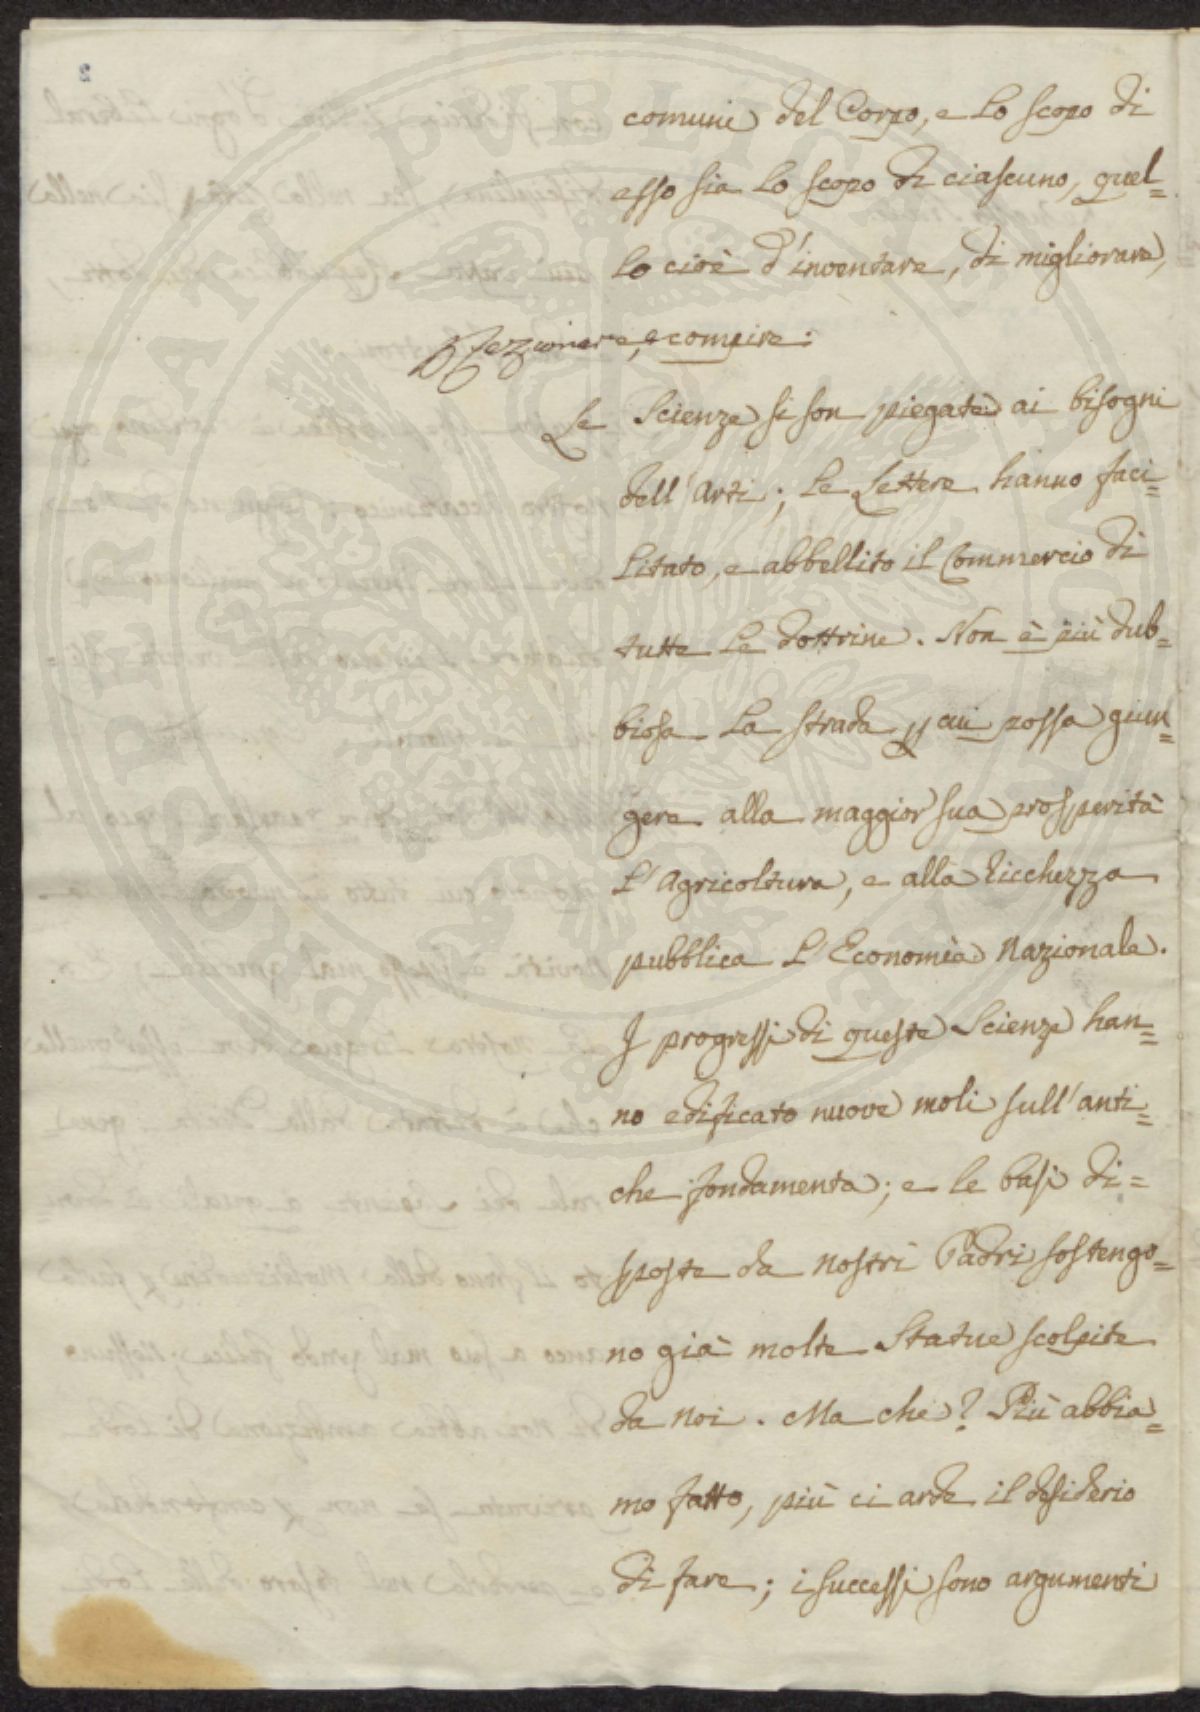 comune del Corpo, e lo scopo di
esso sia lo scopo di ciascuno, quel=
lo cioè d'inventare, di migliorare,
e compire.
Le Scienze si son piegate ai bisogni
dell'Arti; le Lettere hanno faci=
litato, e abbellito il Commercio di
tutte le dottrine. Non è più dub=
biosa la strada p cui possa giun=
gere alla maggior sua prosperità
l'Agricoltura, e alla Ricchezza
pubblica l'Economia Nazionale.
I progressi di queste Scienze han=
no edificato nuove moli sull'anti=
che fondamenta; e le basi di=
sposte da nostri Padri sostengo=
no già molte Statue scolpite
da noi. Ma che? Più abbia=
mo fatto, più ci arde il desiderio
di fare; i successi sono argumenti
PROSPERITATI PUBLICAE AUGENDAE